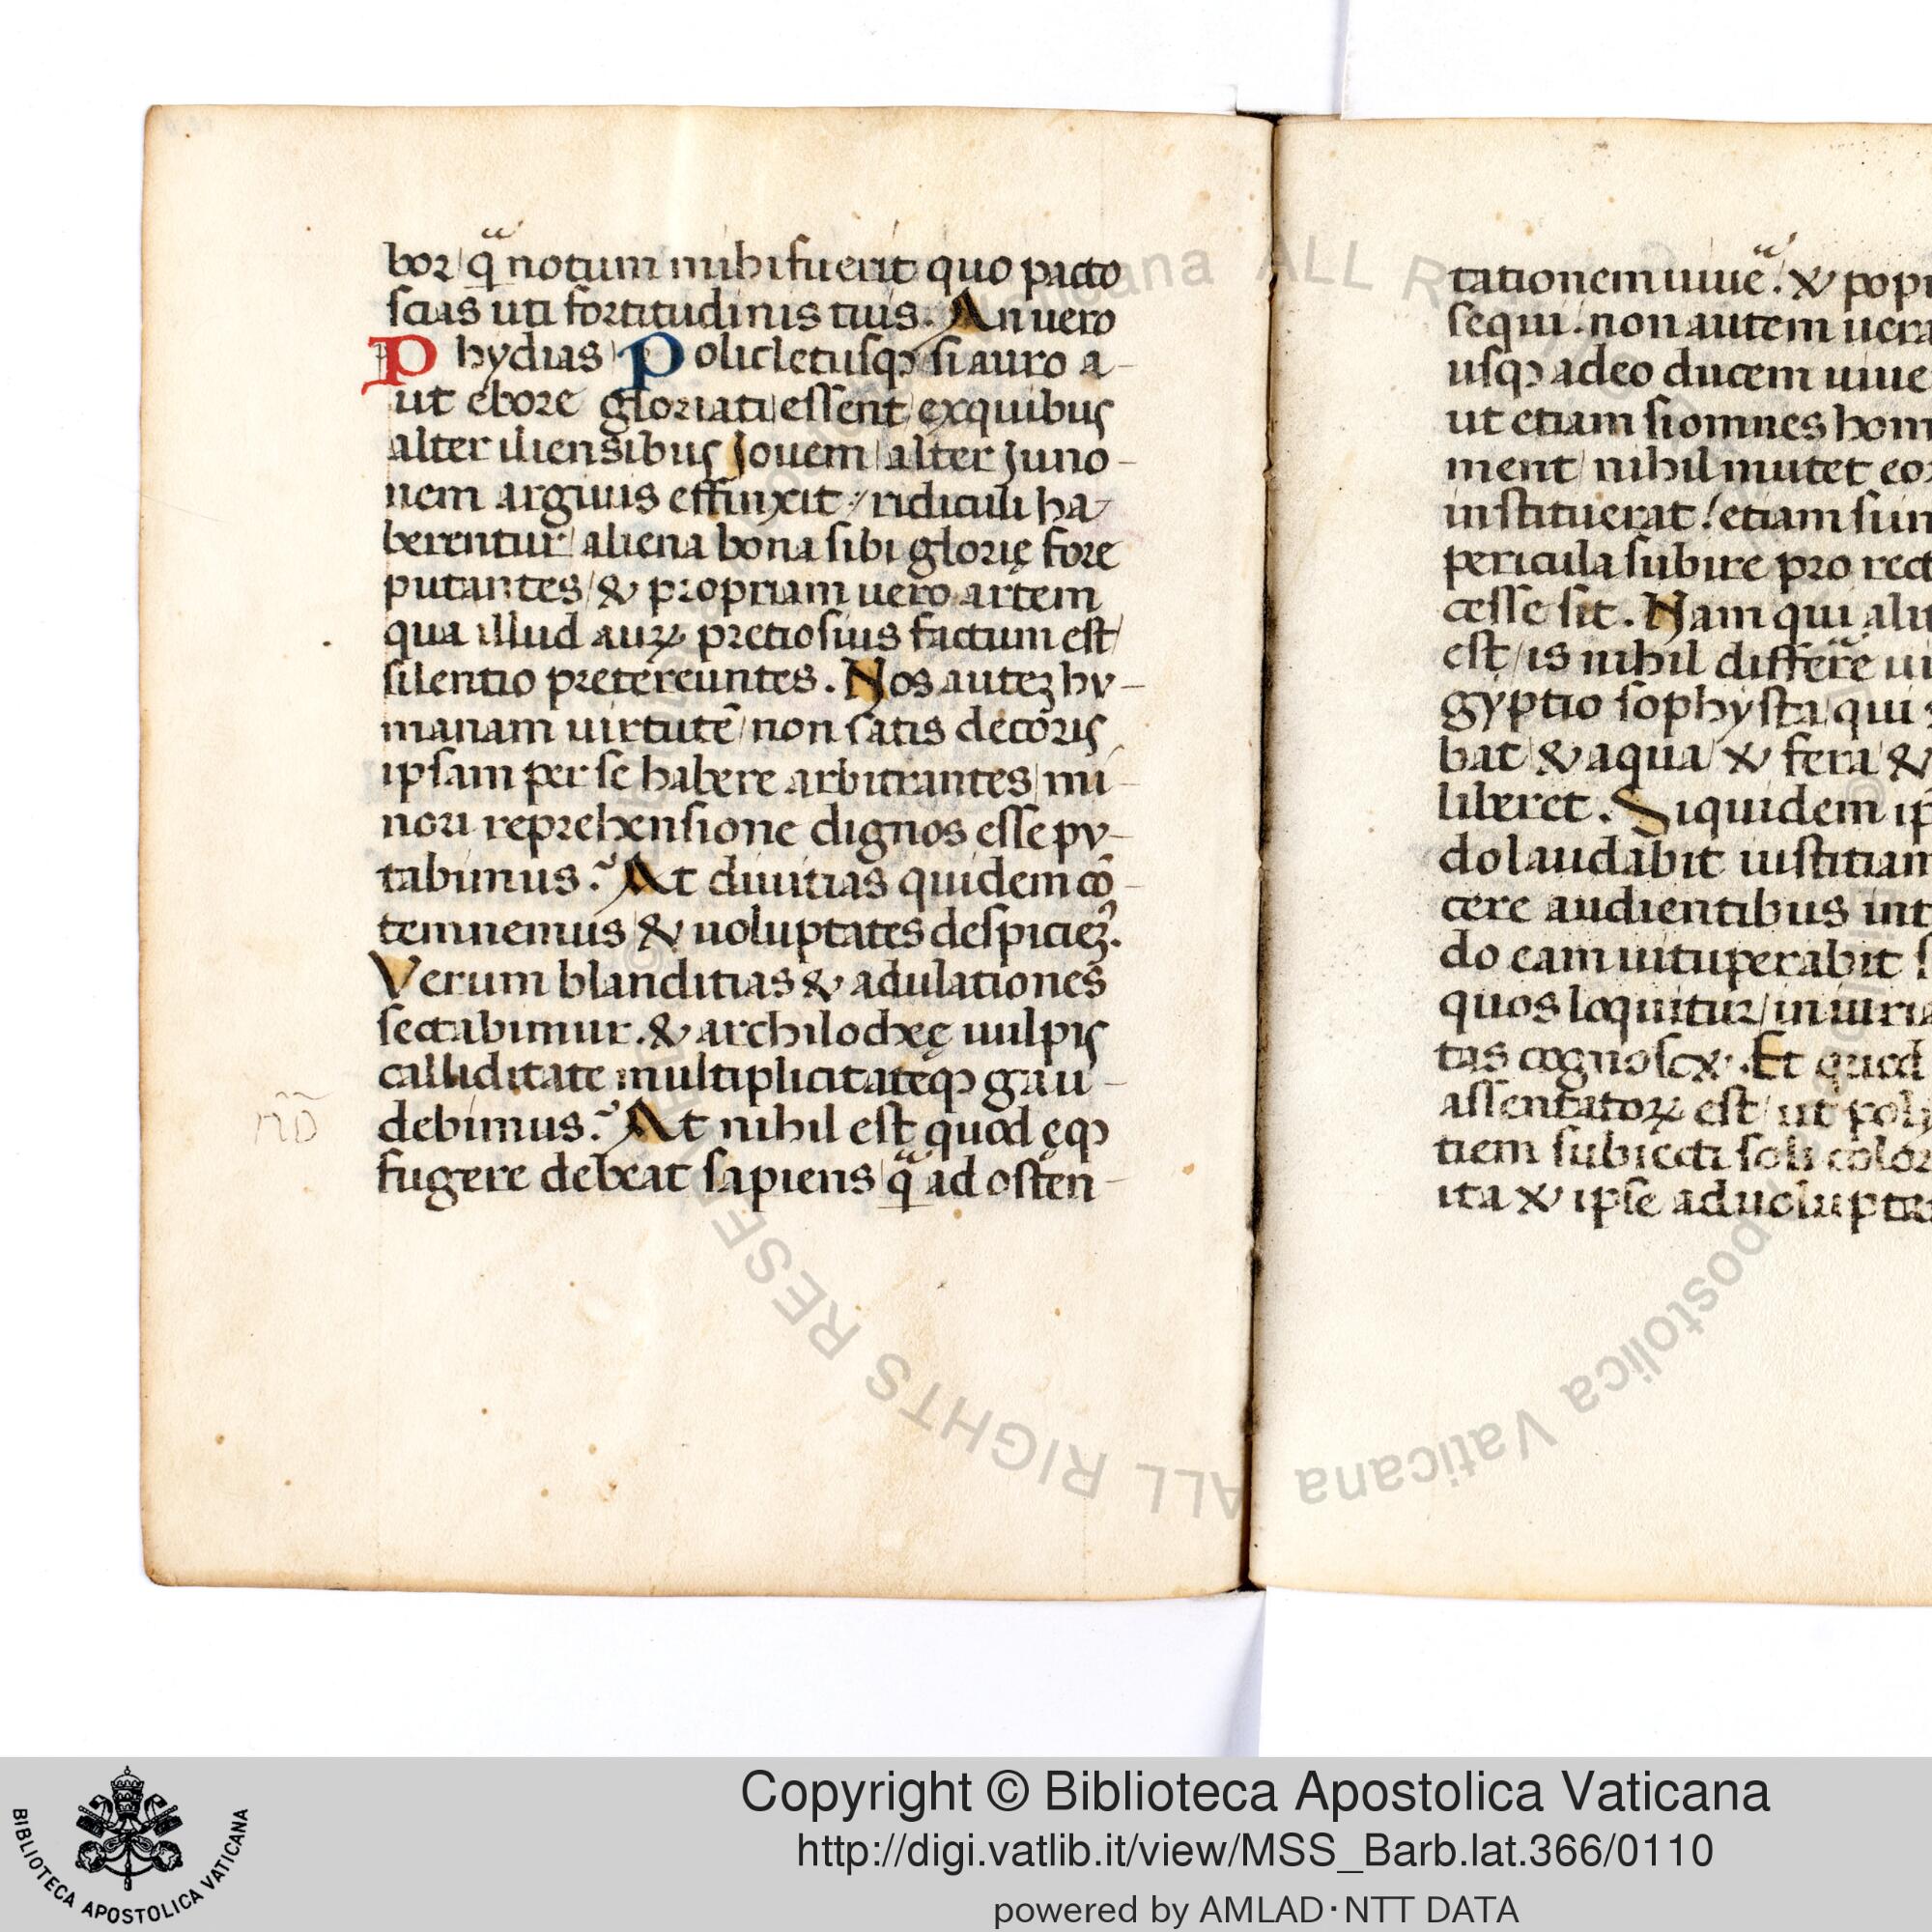 bor / qᷓ notum mihi fuerit quo pacto
scias uti fortitudinis tuis. An uero
Phydias / Policletusqꝫ si auro a-
ut ebore gloriati essent / exquibus
alter iliensibus Jouem / alter Juno-
nem argiuis effinxit / ridiculi ha-
berentur / aliena bona sibi glorię fore
putantes / & propriam uero artem
qua illud auꝝ pretiosius factum est /
silentio pretereuntes. Nos auteꝫ hv-
manam uirtutē / non satis decoris
ipsam per se habere arbitrantes / mi-
nori reprehensione dignos esse pv-
tabimus? At diuitias quidem cō-
temnemus / & uoluptates despicieꝫ.
Verum blanditias & adulationes
sectabimur. & archilochęę uulpis
calliditate multiplicitateqꝫ gau-
debimus? At nihil est quod ęqꝫ
fugere debeat sapiens / qᷓ ad osten-
tationem uiue
sequi. non autem uera
usqꝫ adeo ducem uiue
ut etiam si omnes hom
ment / nihil mutet eo
instituerat! etiam sum
pericula subire pro rect
cesse sit. Nam qui ali
est / is nihil differre ui
gyptio sophysta / qui
bat / & aqua / & fera / &
liberet. Siquidem ip
do laudabit iustitiam
cere audientibus int
do eam uituperabit s
quos loquitur / iniuria
tas cognosc&. Et quod
assentatoꝝ est / ut poly
tiem subiecti soli color
ita & ipse ad uolupta
BIBLIOTECA APOSTOLICA VATICANA
Copyright © Biblioteca Apostolica Vaticana
http://digi.vatlib.it/view/MSS_Barb.lat.366/0110
powered by AMLAD·NTT DATA